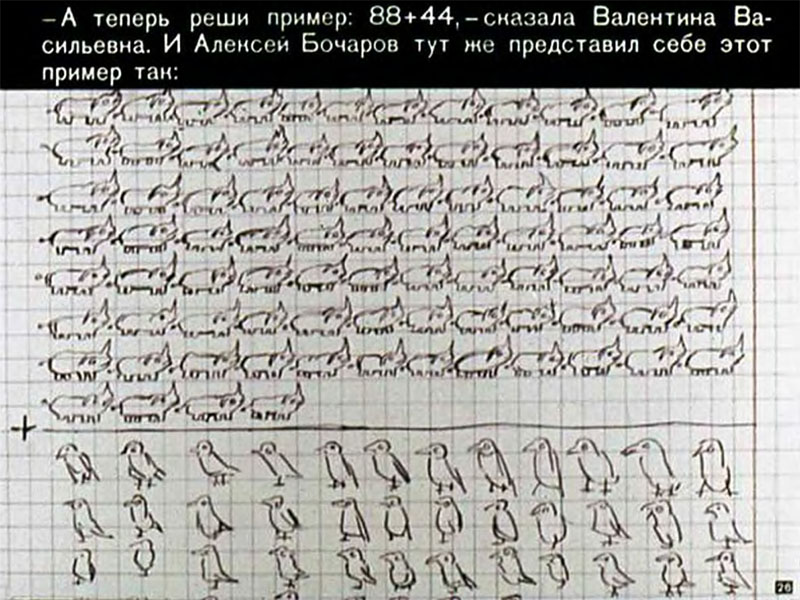 – А теперь реши пример: 88+44, – сказала Валентина Ва-
сильевна. И Алексей Бочаров тут же представил себе этот
пример так:
+
26